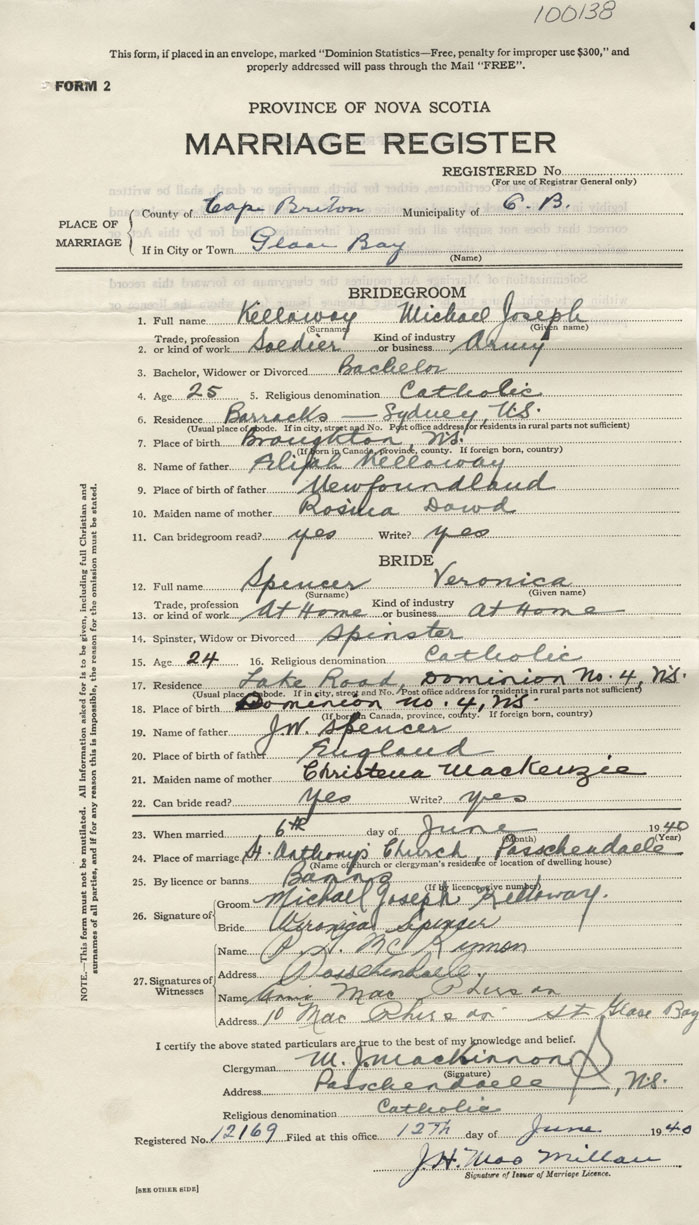 100138
This form, if placed in an envelope, marked "Dominion Statistics—Free, penalty for improper use $300," and
properly addressed will pass through the Mail "FREE".
FORM 2
PROVINCE OF NOVA SCOTIA
MARRIAGE REGISTER
REGISTERED No.
(For use of Registrar General only)
PLACE OF MARRIAGE
County of Cape Briton Municipality of C. B.
If in City or Town Glace Bay
(Name)
BRIDEGROOM
1. Full name Kellaway Michael Joseph
(Surname) (Given name)
2. Trade, profession or kind of work Soldier Kind of industry or business Army
3. Bachelor, Widower or Divorced Bachelor
4. Age 25 5. Religious denomination Catholic
6. Residence Barracks — Sydney, N.S.
(Usual place of abode. If in city, street and No. Post office address for residents in rural parts not sufficient)
7. Place of birth Broughton, N.S.
(If born in Canada, province, county. If foreign born, country)
8. Name of father Elijah Kellaway
9. Place of birth of father Newfoundland
10. Maiden name of mother Rosina Dowd
11. Can bridegroom read? yes Write? yes
BRIDE
12. Full name Spencer Veronica
(Surname) (Given name)
13. Trade, profession or kind of work At Home Kind of industry or business At Home
14. Spinster, Widow or Divorced Spinster
15. Age 24 16. Religious denomination Catholic
17. Residence Lake Road, Dominion No. 4, N.S.
(Usual place of abode. If in city, street and No. Post office address for residents in rural parts not sufficient)
18. Place of birth Dominion no. 4, N.S.
(If born in Canada, province, county. If foreign born, country)
19. Name of father J.W. Spencer
20. Place of birth of father England
21. Maiden name of mother Christena Mackenzie
22. Can bride read? Yes Write? yes
23. When married 6th day of June 1940
(Month) (Year)
24. Place of marriage St. Anthony's Church, Passchendaele
(Name of church or clergyman's residence or location of dwelling house)
25. By licence or banns Banns
(If by licence give number)
26. Signature of
Groom Michael Joseph Kellaway.
Bride Veronica Spencer
27. Signatures of Witnesses
Name P. McKinnon
Address Passchendaele
Name Annie Mac Pherson
Address 10 Mac Pherson St Glace Bay
I certify the above stated particulars are true to the best of my knowledge and belief.
Clergyman M. J. MacKinnon
(Signature)
Address Passchendaele, N.S.
Religious denomination Catholic
Registered No. 12169 Filed at this office 12th day of June 1940
J.H. Mac Millan
Signature of Issuer of Marriage Licence.
[SEE OTHER SIDE]
NOTE.—This form must not be mutilated. All information asked for is to be given, including full Christian and
surnames of all parties, and if for any reason this is impossible, the reason for the omission must be stated.